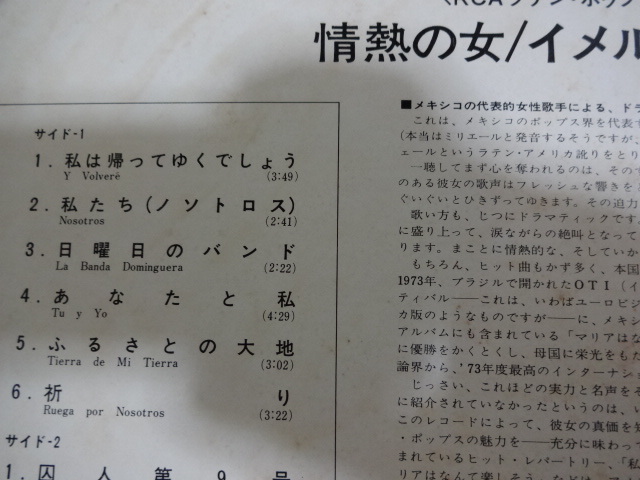 情熱の女/イメル
サイド-1
1.私は帰ってゆくでしょう
Y Volverè (3:49)
2.私たち(ノソトロス)
Nosotros (2:41)
3.日曜日のバンド
La Banda Dominguera (2:22)
4.あなたと私
Tu y Yo (4:29)
5.ふるさとの大地
Tierra de Mi Tierra (3:02)
6.祈り
Ruega por Nosotros (3:22)
サイド-2
1.囚人第9号
■メキシコの代表的女性歌手による、ドラ
これは、メキシコのポップス界を代表す
(本当はミリエールと発音するそうですが、
ェールというラテン・アメリカ訛りをとり
一聴してまず心を奪われるのは、そのす
のある彼女の歌声はフレッシュな響きを
ぐいぐいとひきずってゆきます。その迫力
歌い方も、じつにドラマティックです
に盛り上って、涙ながらの絶叫となって
ります。まことに情熱的な、そしていか
もちろん、ヒット曲もかず多く、本国
1973年、ブラジルで開かれたOTI(イ
ティバル——これは、いわばユーロビジ
カ版のようなものですが——に、メキシ
アルバムにも含まれている「マリアはな
に優勝をかくとくし、母国に栄光をもた
論界から、'73年度最高のインターナシ
じっさい、これほどの実力と名声をそ
に紹介されていなかったというのは、い
このレコードによって、彼女の真価を知
・ポップスの魅力を——充分に味わって
まれているヒット・レパートリー、「私
リアはなんて楽しそう」などは、